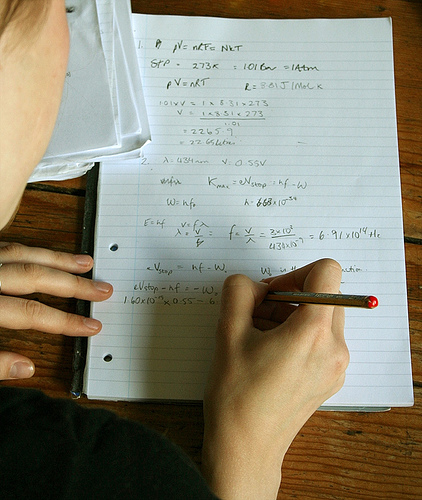 1. pV = nRT = NkT
STP - 273K = 1.01 Bar = 1 Atm
pV = nRT R = 8.31 J/Mol K
1.01 x V = 1 x 8.31 x 273
V = 1 x 8.31 x 273
1.01
= 2265.9
= 22.65
2. λ = 434nm V: 0.55V
Kmax = eVstop = hf - W
W = hf₀ h = 6.63x10⁻³⁴
E = hf V = fλ
λ = V/f f = V/λ = 3x10⁸/434x10⁻⁹ = 6.91x10¹⁴ Hz
eVstop = hf - W₀ W₀ is
eVstop - hf = -W₀
1.60x10⁻¹⁹ x 0.55 - 6